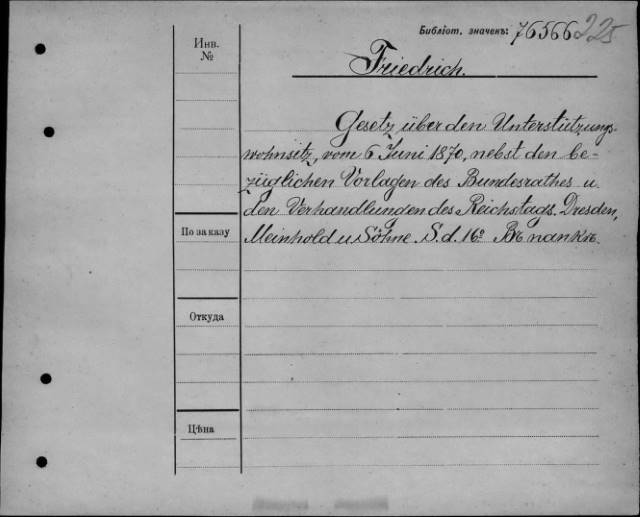 Библіот. значекъ: 76566 225
Инв.
№
Friedrich.
Gesetz über den Unterstützungs-
wohnsitz, vom 6 Juni 1870, nebst den be-
züglichen Vorlagen des Bundesrathes u.
den Verhandlungen des Reichstags. Dresden,
По заказу
Meinhold u Söhne. S. d. 16º Въ папкѣ.
Откуда
Цѣна